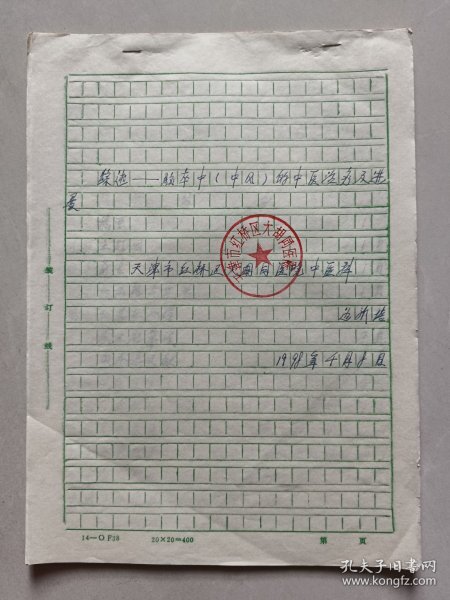 综述——脑卒中（中风）的中医治疗及进
展
天津市红桥区大胡同医院中医科
天津市红桥区大胡同医院
1998年4月8日
装订线
14—O F38 20×20=400 第 页
孔夫子旧书网
www.kongfz.com